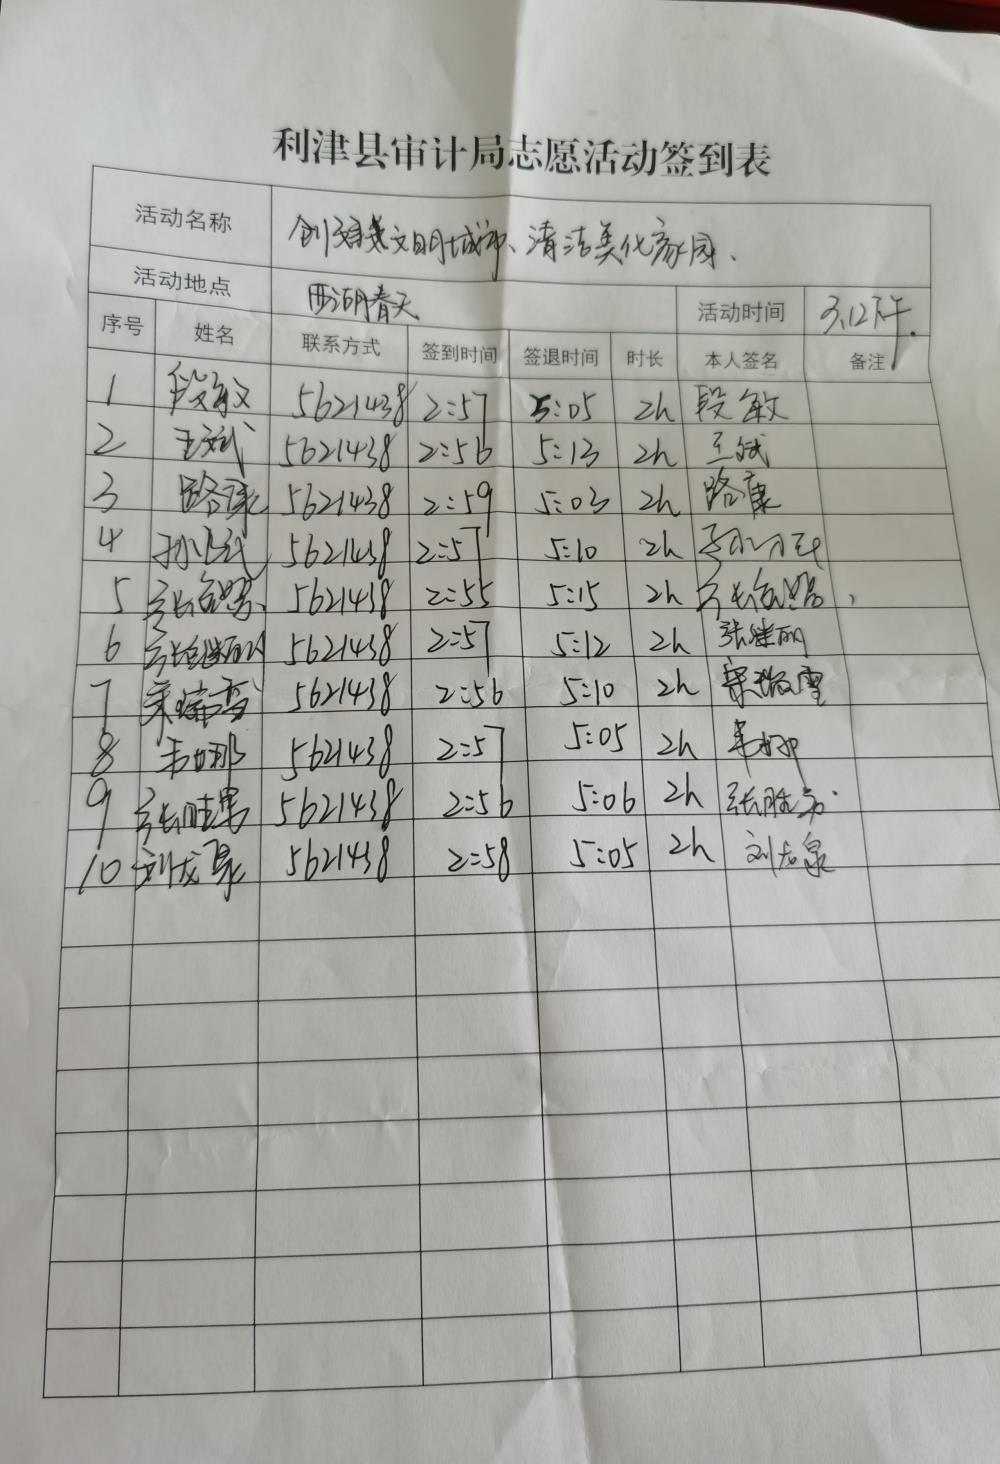 利津县审计局志愿活动签到表
活动名称 创建文明城市、清洁美化家园、
活动地点 西湖春天 活动时间 3.12下午.
序号 姓名 联系方式 签到时间 签退时间 时长 本人签名 备注
1 段敏 5621438 2:57 5:05 2h 段敏
2 王斌 5621438 2:56 5:13 2h 王斌
3 路康 5621438 2:59 5:03 2h 路康
4 5621438 2:57 5:10 2h
5 5621438 2:55 5:15 2h
6 张继丽 5621438 2:57 5:12 2h 张继丽
7 5621438 2:56 5:10 2h
8 5621438 2:57 5:05 2h
9 张胜男 5621438 2:56 5:06 2h 张胜男
10 刘龙泉 5621438 2:58 5:05 2h 刘龙泉